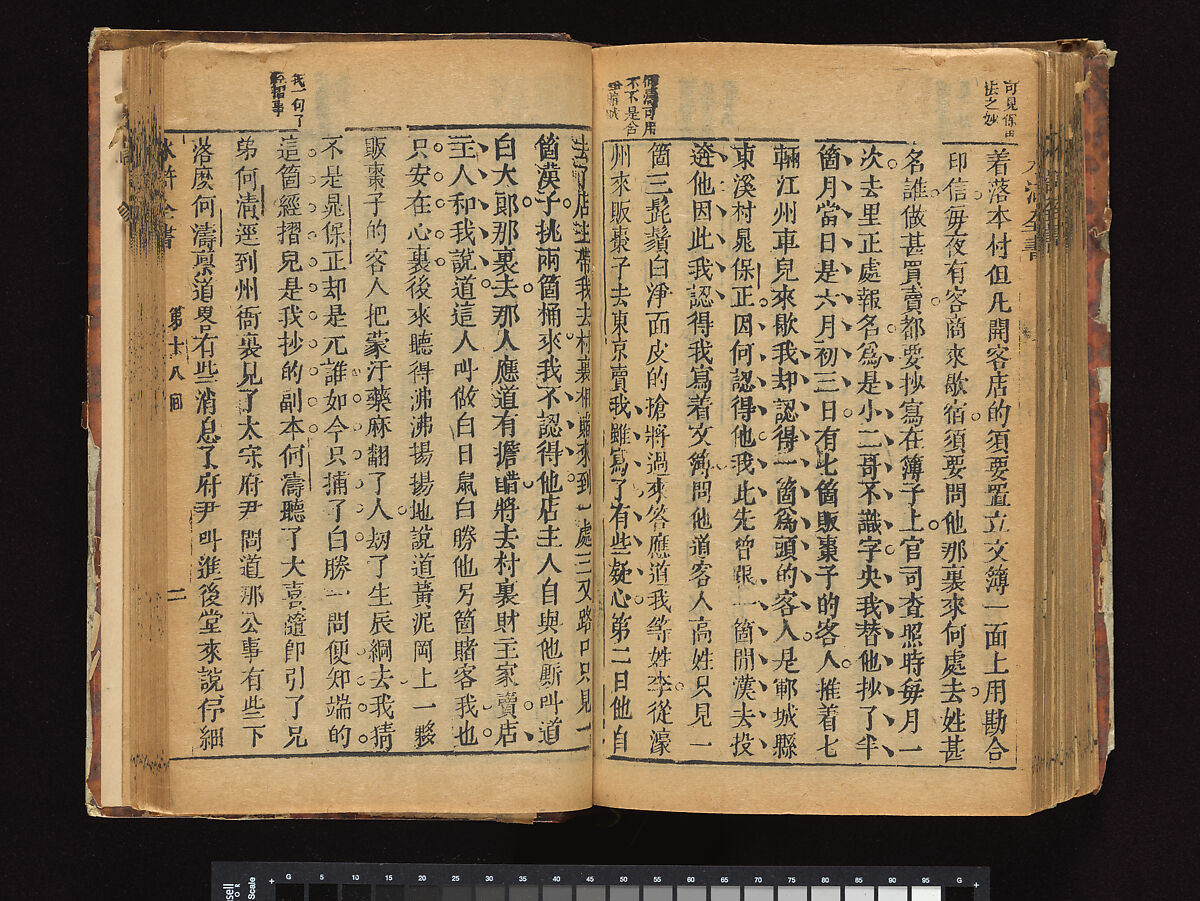 可見保甲
法之妙
着落本村但凡開客店的須要置立文簿一面上用勘合
印信每夜有客商來歇宿須要問他那裏來何處去姓甚
名誰做甚買賣都要抄寫在簿子上官司查照時每月一
次去里正處報名爲是小二哥不識字央我替他抄了半
箇月當日是六月初三日有七箇販棗子的客人推着七
輛江州車兒來歇我却認得一箇爲頭的客人是鄆城縣
東溪村晁保正因何認得他我此先曾跟一箇閒漢去投
遶他因此我認得我寫着文簿問他道客人高姓只見一
不不是舍
箇三髭鬚白淨面皮的搶將過來答應道我等姓李從濠
州來販棗子去東京賣我雖寫了有些疑心第二日他自
去了店主帶我去村裏相賭來到一處三叉路口只見一
箇漢子挑兩箇桶來我不認得他店主人自與他厮叫道
白大郎那裏去那人應道有擔醋將去村裏財主家賣店
主人和我說道這人叫做白日鼠白勝他另箇賭客我也
只安在心裏後來聽得沸沸揚揚地說道黃泥岡上一夥
販棗子的客人把蒙汗藥麻翻了人刼了生辰綱去我猜
不是晁保正却是兀誰如今只捕了白勝一問便知端的
我一句了
這箇經摺兒是我抄的副本何濤聽了大喜隨卽引了兄
弟何清逕到州衙裏見了太守府尹問道那公事有些下
落麽何濤禀道畧有些消息了府尹叫進後堂來說停細
水滸全書
第十八回
二